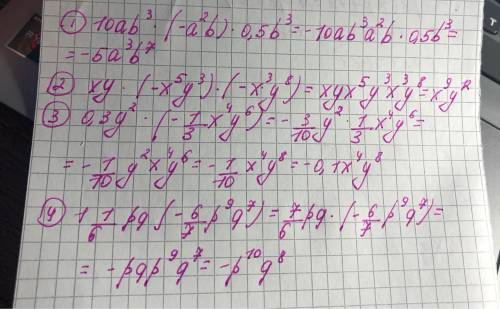 ① 10ab³ · (-a²b) · 0,5b³ = -10ab³a²b · 0,5b³ =
= -5a³b⁷
② xy · (-x⁵y³) · (-x³y⁸) = xyx⁵y³x³y⁸ = x⁹y¹²
③ 0,3y² · (-1/3 x⁴y⁶) = -3/10 y² · 1/3 x⁴y⁶ =
= -1/10 y²x⁴y⁶ = -1/10 x⁴y⁸ = -0,1x⁴y⁸
④ 1 1/6 pq (-6/7 p⁹q⁷) = 7/6 pq · (-6/7 p⁹q⁷) =
= -pqp⁹q⁷ = -p¹⁰q⁸